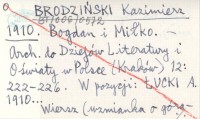 BRODZIŃSKI Kazimierz
1910. Bogdan i Miłko. -
Arch. do Dziejów Literatury i
Oświaty w Polsce (Kraków) 12:
222-226. W pozycji: ŁUCKI A.
1910...
Wiersz (wzmianka o